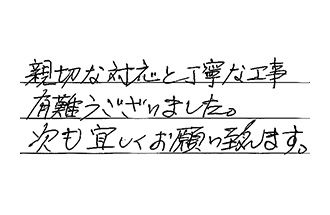 親切な対応と丁寧な工事
有難うございました。
次も宜しくお願い致します。